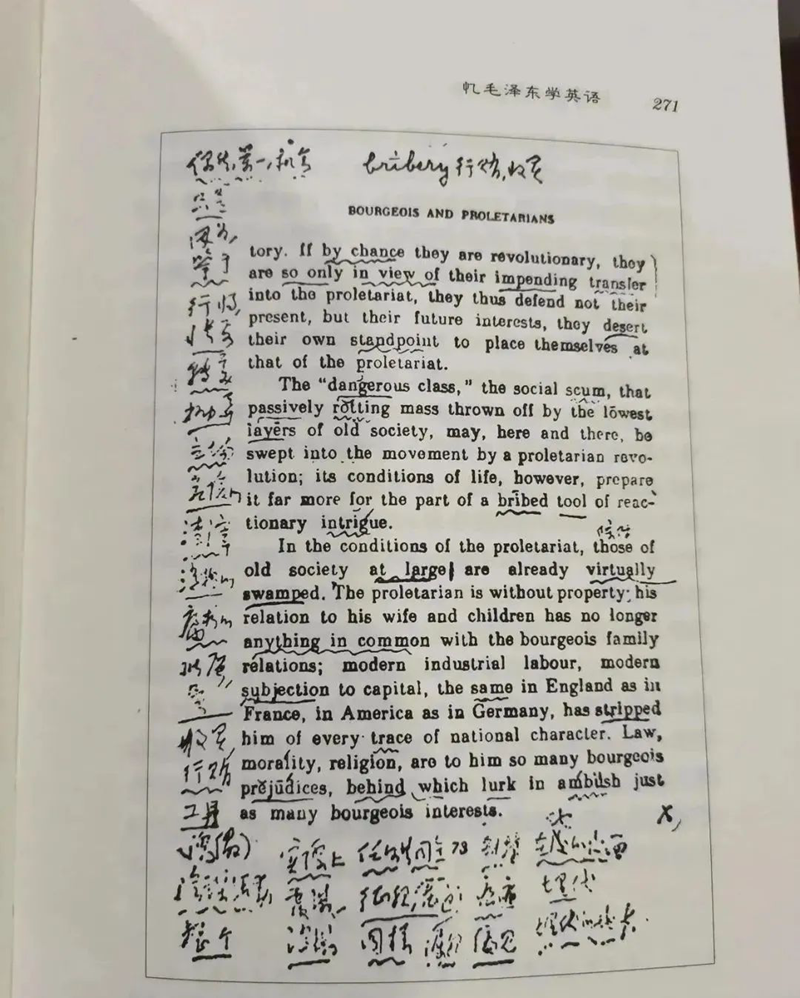 忆毛泽东学英语 271
偶然，第一，机会 bribery 行贿，收买
BOURGEOIS AND PROLETARIANS
tory. If by chance they are revolutionary, they
are so only in view of their impending transfer
into the proletariat, they thus defend not their
present, but their future interests, they desert
their own standpoint to place themselves at
that of the proletariat.
The "dangerous class," the social scum, that
passively rotting mass thrown off by the lowest
layers of old society, may, here and there, be
swept into the movement by a proletarian revo-
lution; its conditions of life, however, prepare
it far more for the part of a bribed tool of reac-
tionary intrigue.
In the conditions of the proletariat, those of
old society at large, are already virtually
swamped. The proletarian is without property; his
relation to his wife and children has no longer
anything in common with the bourgeois family
relations; modern industrial labour, modern
subjection to capital, the same in England as in
France, in America as in Germany, has stripped
him of every trace of national character. Law,
morality, religion, are to him so many bourgeois
prejudices, behind which lurk in ambush just
as many bourgeois interests.
只是
因为
鉴于
行将
转变
抛弃
立场
危险的
渣滓
消极的
腐朽的
收买
行贿
工具
整个
实际上
淹没
73
共同
偏见
埋伏